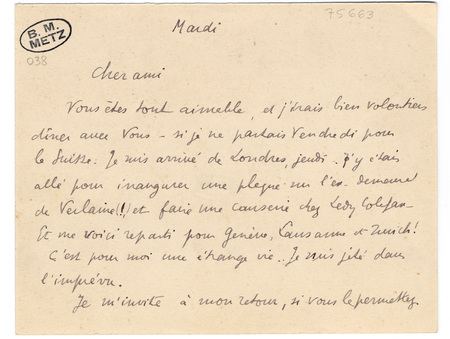 Mardi
75663
B. M.
METZ
038
Cher ami
Vous êtes tout aimable, et j'irais bien volontiers
dîner avec vous - si je ne partais vendredi pour
la Suisse. Je suis arrivé de Londres, jeudi. J'y étais
allé pour inaugurer une plaque sur l'ex-demeure
de Verlaine (!) et faire une causerie chez Lady Colefax -
Et me voici reparti pour Genève, Lausanne et Zurich!
C'est pour moi une étrange vie.. Je suis jeté dans
l'imprévu.
Je m'invite à mon retour, si vous le permettez